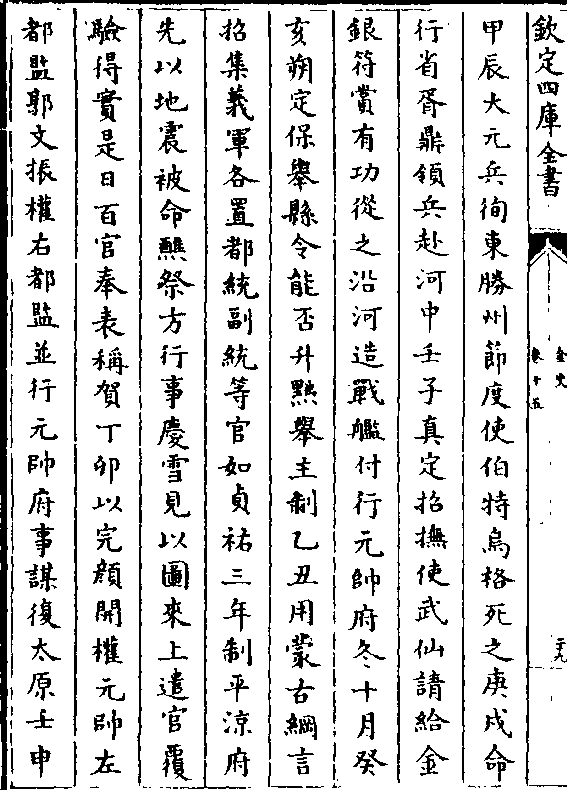 欽定四庫全書
金史
卷十五
二十九
甲辰大元兵徇東勝州節度使伯特烏格死之庚戌命
行省胥鼎領兵赴河中壬子真定招撫使武仙請給金
銀符賞有功從之沿河造戰艦付行元帥府冬十月癸
亥朔定保舉縣令能否升黜舉主制乙丑用蒙古綱言
招集義軍各置都統副統等官如貞祐三年制平涼府
先以地震被命醮祭方行事慶雪見以圖來上遣官覆
驗得實是日百官奉表稱賀丁卯以完顔開權元帥左
都監郭文振權右都監並行元帥府事謀復太原壬申